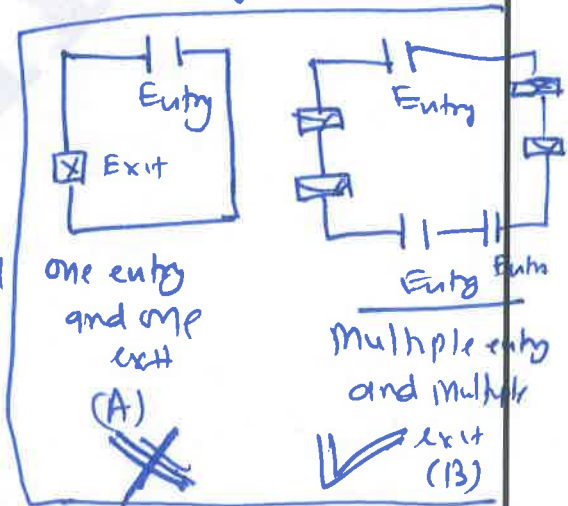 Entry
Exit
one entry
and one
exit
(A)
Entry
Entry
Entr
Multiple entry
and Multiple
exit
(B)